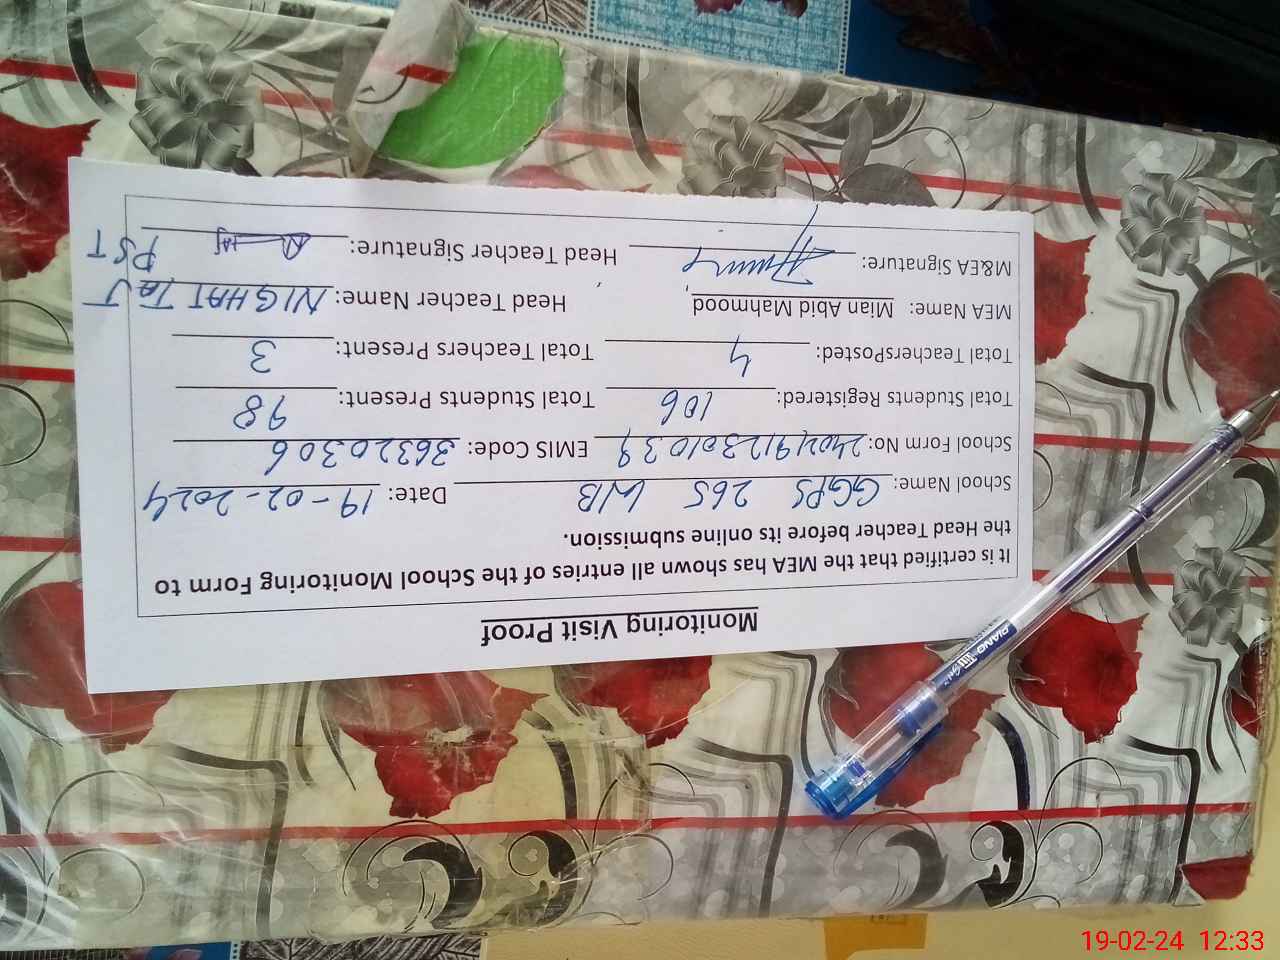 Monitoring Visit Proof
It is certified that the MEA has shown all entries of the School Monitoring Form to
the Head Teacher before its online submission.
School Name: GGPS 265 W/B Date: 19-02-2024
School Form No: 24024912301039 EMIS Code: 36320306
Total Students Registered: 106 Total Students Present: 98
Total TeachersPosted: 4 Total Teachers Present: 3
MEA Name: Mian Abid Mahmood Head Teacher Name: NIGHAT TAJ
M&EA Signature: Head Teacher Signature: PST
PIANO
19-02-24 12:33